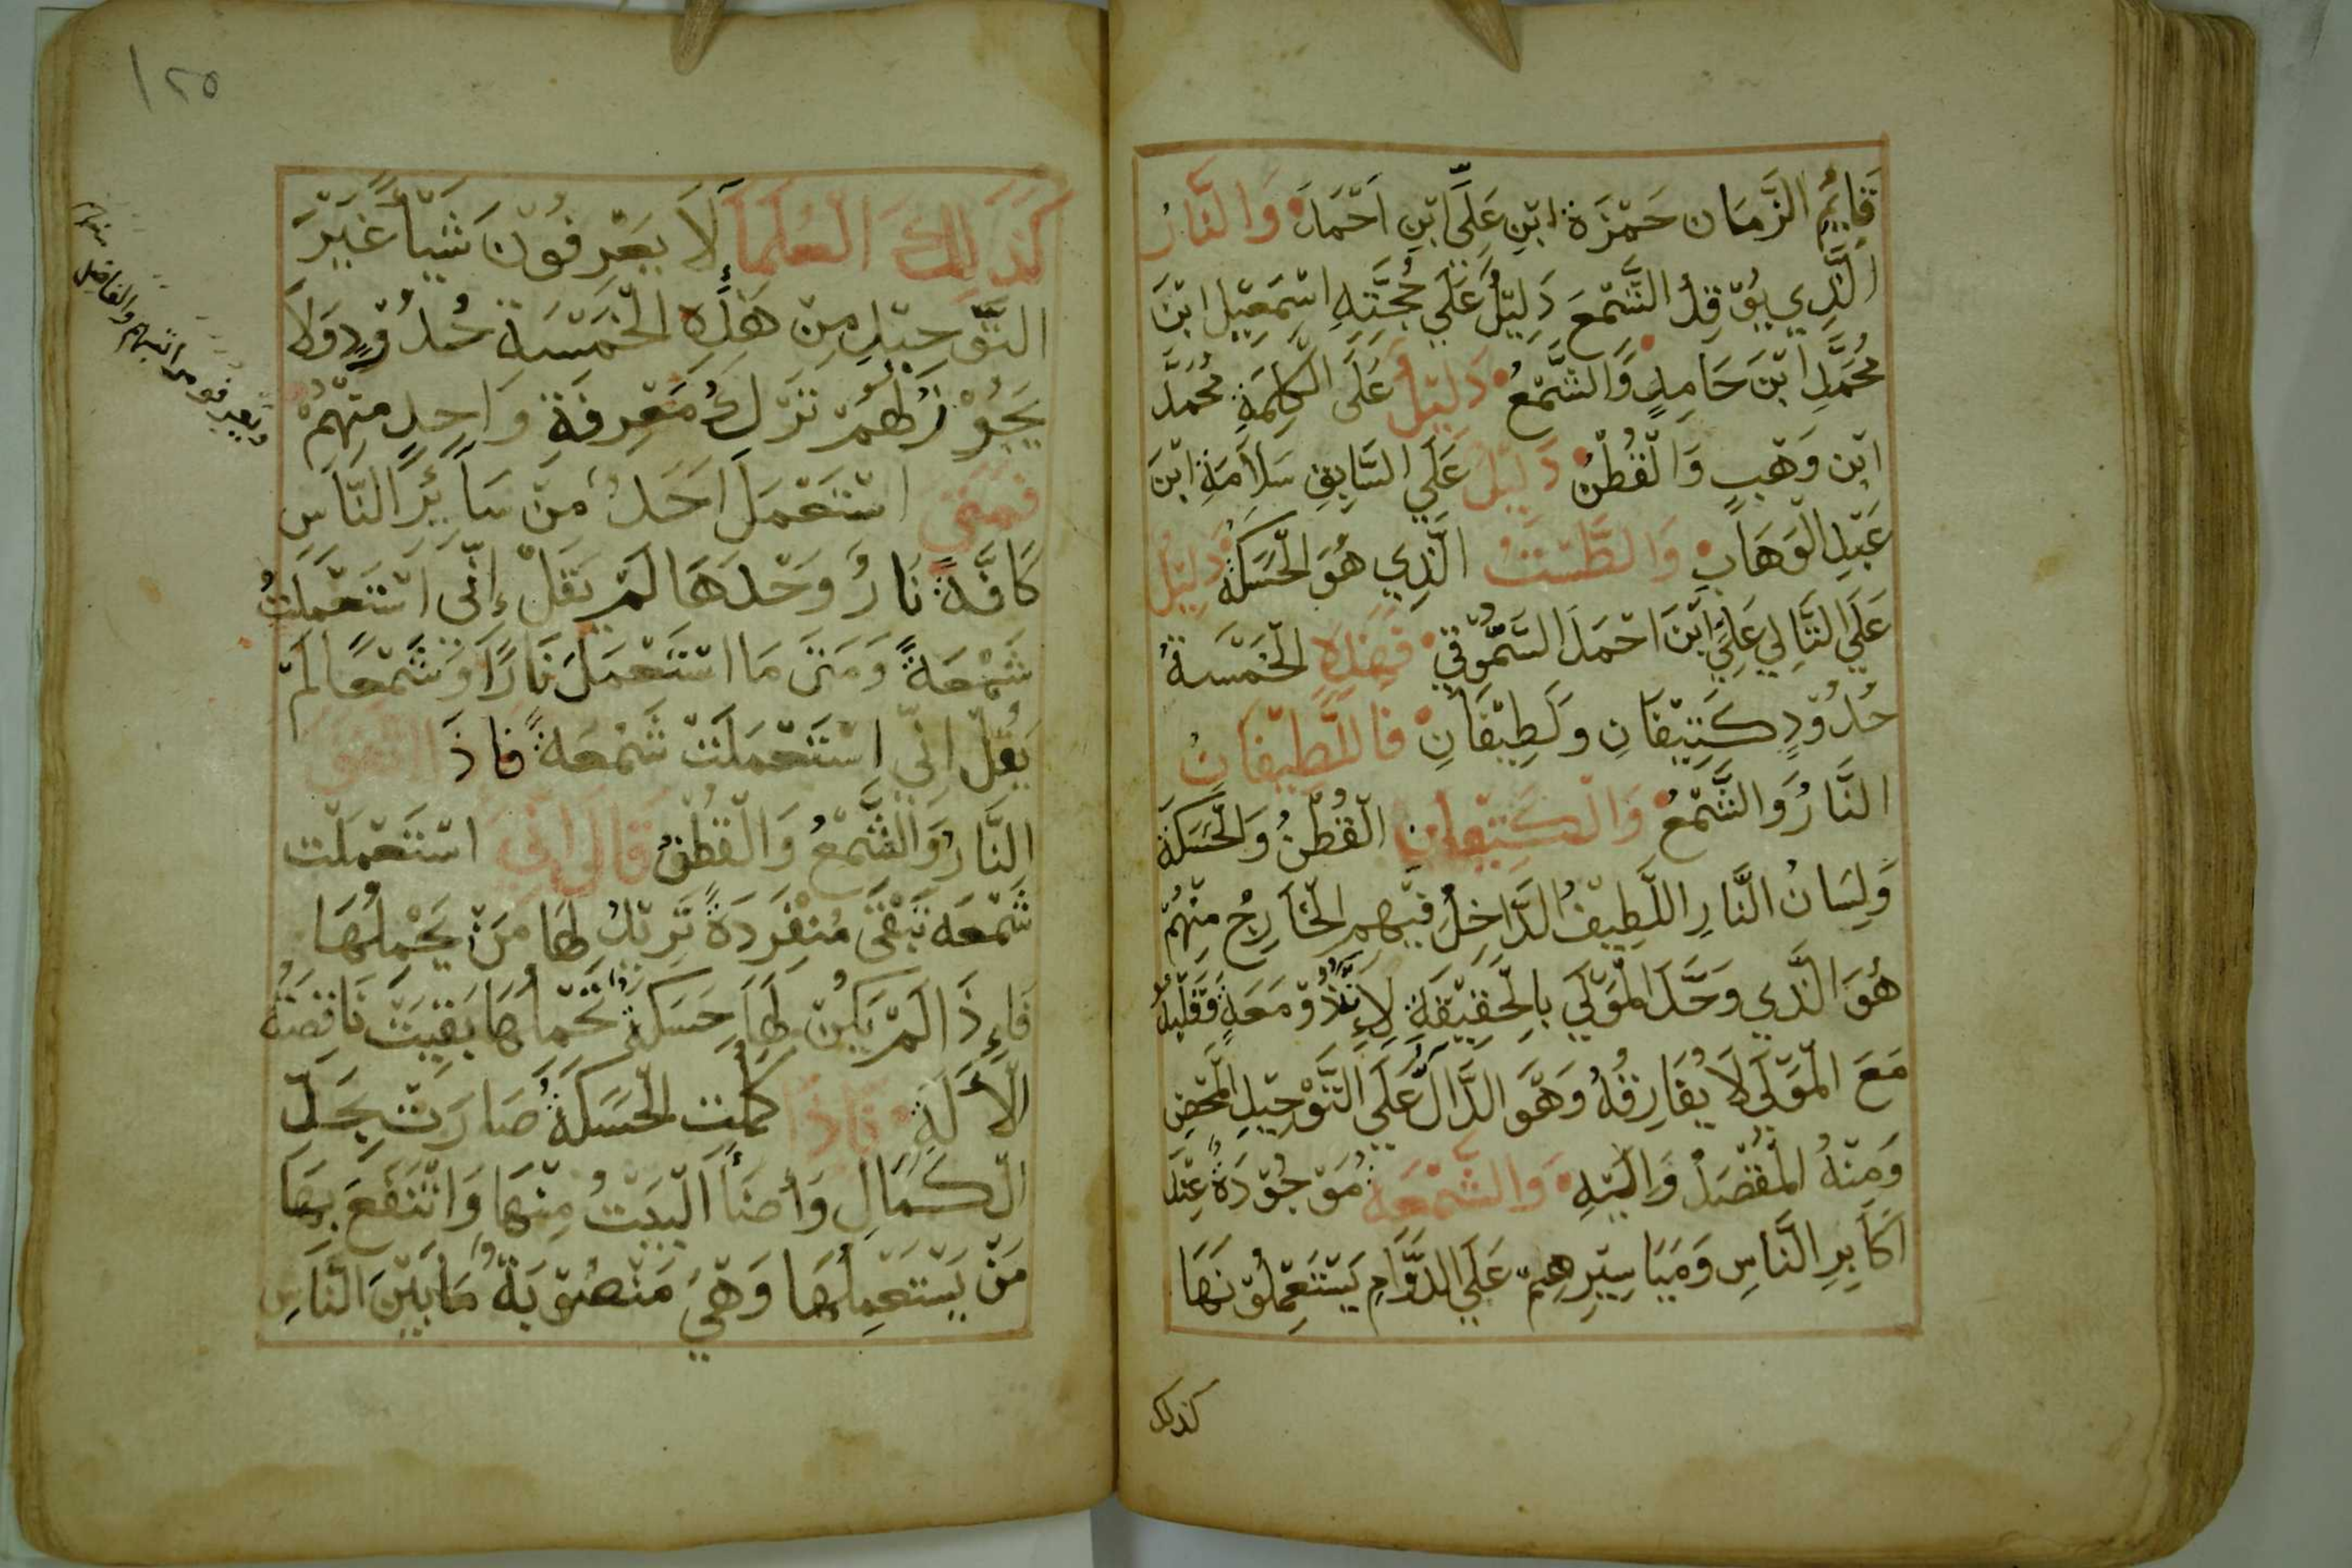 قَايِمُ الزَّمَان حَمْزَة ابْنِ عَلِيِّ ابْنِ اَحْمَدَ وَالنَّارُ
الَّذِي يُوْقِدُ الشَّمْعَ دَلِيْلُ عَلَي حُجَّتِهِ اسْمَعِيْل ابْنَ
مُحَمَّدِ ابْنَ حَامِدٍ وَالشَّمْعُ دَلِيْلُ عَلَى الْكَلِمَةِ مُحَمَّد
ابْن وَهْبٍ وَالْقُطْنُ دَلِيْلُ عَلَي السَّابِقِ سَلَامَةِ ابْنَ
عَبْدِ الْوَهَابِ وَالطَّسْتُ الَّذِي هُوَ الْحَسَكَةُ دَلِيْلُ
عَلَي التَّالِي عَلِيِّ ابْنَ احْمَدَ السَّمُّوْقِي فَهَذِهِ الْخَمْسَةُ
حُدُوْدٍ كَتِيْفَانِ وَلَطِيْفَانِ فَاللَّطِيْفَانُ
النَّارُ وَالشَّمْعُ وَالْكَتِيْفَانِ الْقُطْنُ وَالْحَسَكَةُ
وَلِسَانُ النَّارِ اللَّطِيْفُ الدَّاخِلُ فِيْهِمِ الْخَارِجُ مِنْهُمْ
هُوَ الَّذِي وَحَّدَ الْمَوْلَي بِالْحَقِيْقَةِ لِاِنَّ ذُوْ مَعَةٍ وَقَلْبُهُ
مَعَ الْمَوْلَي لَا يُفَارِقُهُ وَهُوَ الدَّالُّ عَلَي التَّوْحِيْدِ الْمَحْضِ
وَمِنْهُ الْمَقْصَدُ وَالَيْهِ وَالشَّمْعَة مَوْجُوْدَةُ عِنْدَ
اَكَابِرِ النَّاسِ وَمَيَاسِيْرِهِمْ عَلَي الدَّوَامِ يَسْتَعْمِلُوْنَهَا
كذلك
١٢٥
كَذَلِكَ الْعُلَمَآءُ لَا يَعْرِفُوْنَ شَيْاً غَيْرَ
التَّوْحِيْدِ مِنْ هَذِهِ الْخَمْسَةِ حُدُوْدٍ وَلَا
يَجُوْزُ لَهُمْ تَرْكُ مَعْرِفَةِ وَاحِدٍ مِنْهُمْ
فَمَتَى اسْتَعْمَلَ اَحَدُ مِنْ سَآئِرَ النَّاسِ
كَافَّةً نَارُ وَحْدَهَا لَمْ يَقُلْ إِنِّى اسْتَعْمَلْتُ
شَمْعَةً وَمَتَى مَا اسْتَعْمَلَ نَارًا وَشَمْعًا لَمْ
يَقُلْ اِنِّي اِسْتَعْمَلْتُ شَمْعَةً فَاذَا اتَّفَقَ
النَّارُ وَالشَّمْعُ وَالْقُطْنُ قَالَ اِنِّي اسْتَعْمَلْت
شَمْعَه تَبْقَى مُنْفَرِدَةً تَرِيْدُ لَهَا مَنْ يَحْمِلُهَا
فَاِذَا لَمْ يَكُنْ لَهَا حَسَكَةُ تَحْمِلُهَا بَقِيَتْ نَاقِصَةُ
الْآلَةِ فَاذَا كَمُلَت الْحَسَكَةُ صَارَتْ بِحَدِّ
الْكَمَالِ وَأَضَآءَ الْبَيْتُ مِنْهَا وَانْتَفَعَ بِهَا
مَنْ يَسْتَعْمِلُهَا وَهِيَ مَنْصُوْبَةُ مَا بَيْنَ النَّاسِ
ويعرفو مراتبهم والفاضل
منهم